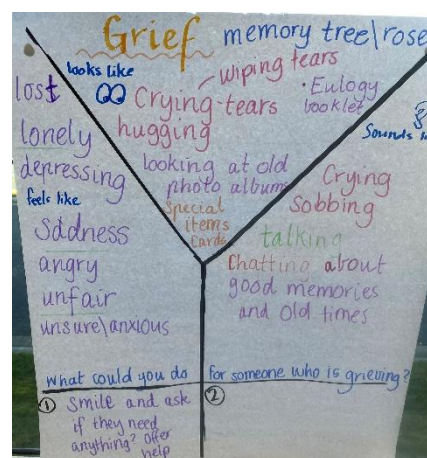 Grief
memory tree\rose
looks like
wiping tears
Crying-tears
• Eulogy
booklet
hugging
looking at old
photo album
special
items
cards
lost
lonely
depressing
feels like
sadness
angry
unfair
unsure\anxious
Sounds
Crying
Sobbing
talking
Chatting about
good memories
and old times
what could you do for someone who is grieving?
① Smile and ask
if they need
anything? offer
help
②